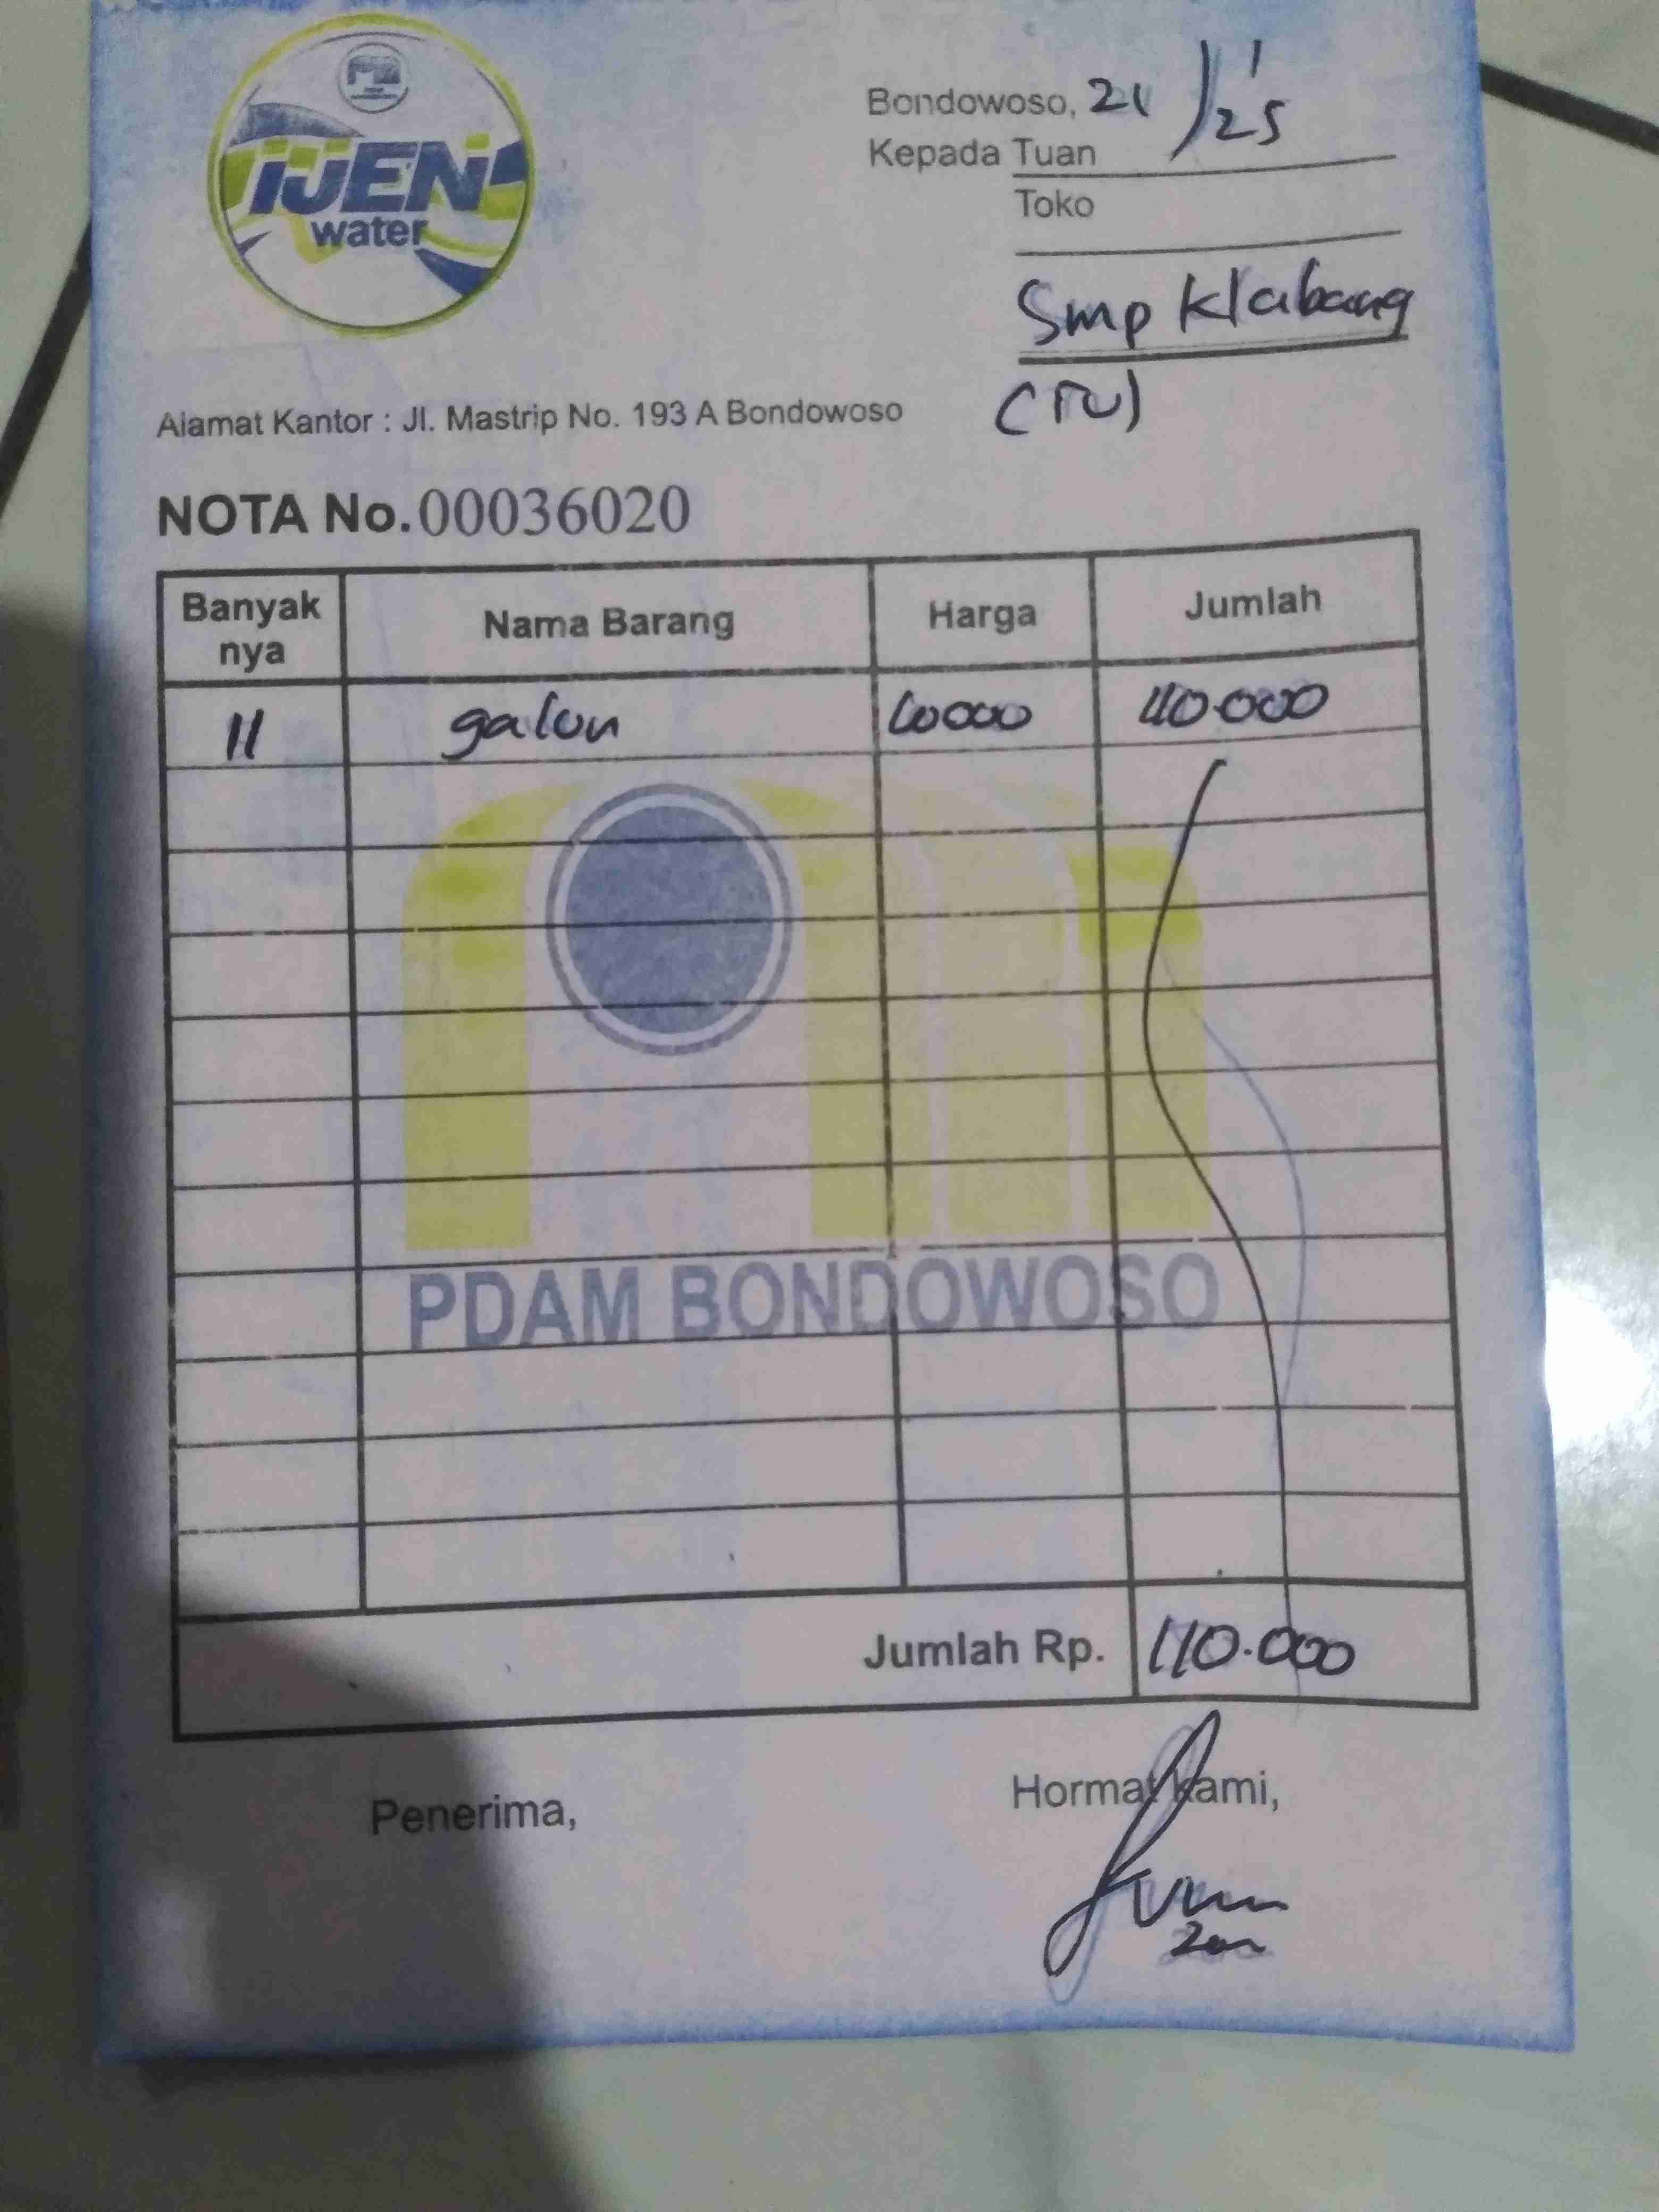 IJEN
water
Bondowoso, 21/1/25
Kepada Tuan
Toko
Smp Klabang
(TU)
Alamat Kantor : Jl. Mastrip No. 193 A Bondowoso
NOTA No. 00036020
Banyak nya Nama Barang Harga Jumlah
11 galon 10000 110.000
PDAM BONDOWOSO
Jumlah Rp. 110.000
Penerima, Hormat kami,